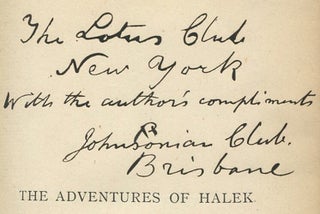 The Lotus Club
New York
With the author's compliments
Johnsonian Club.
Brisbane
THE ADVENTURES OF HALEK.